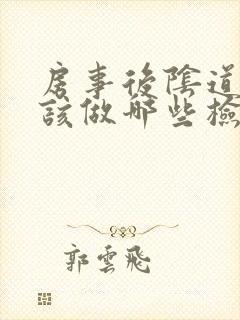 房事後陰道
該做哪些檢
郭雲飛